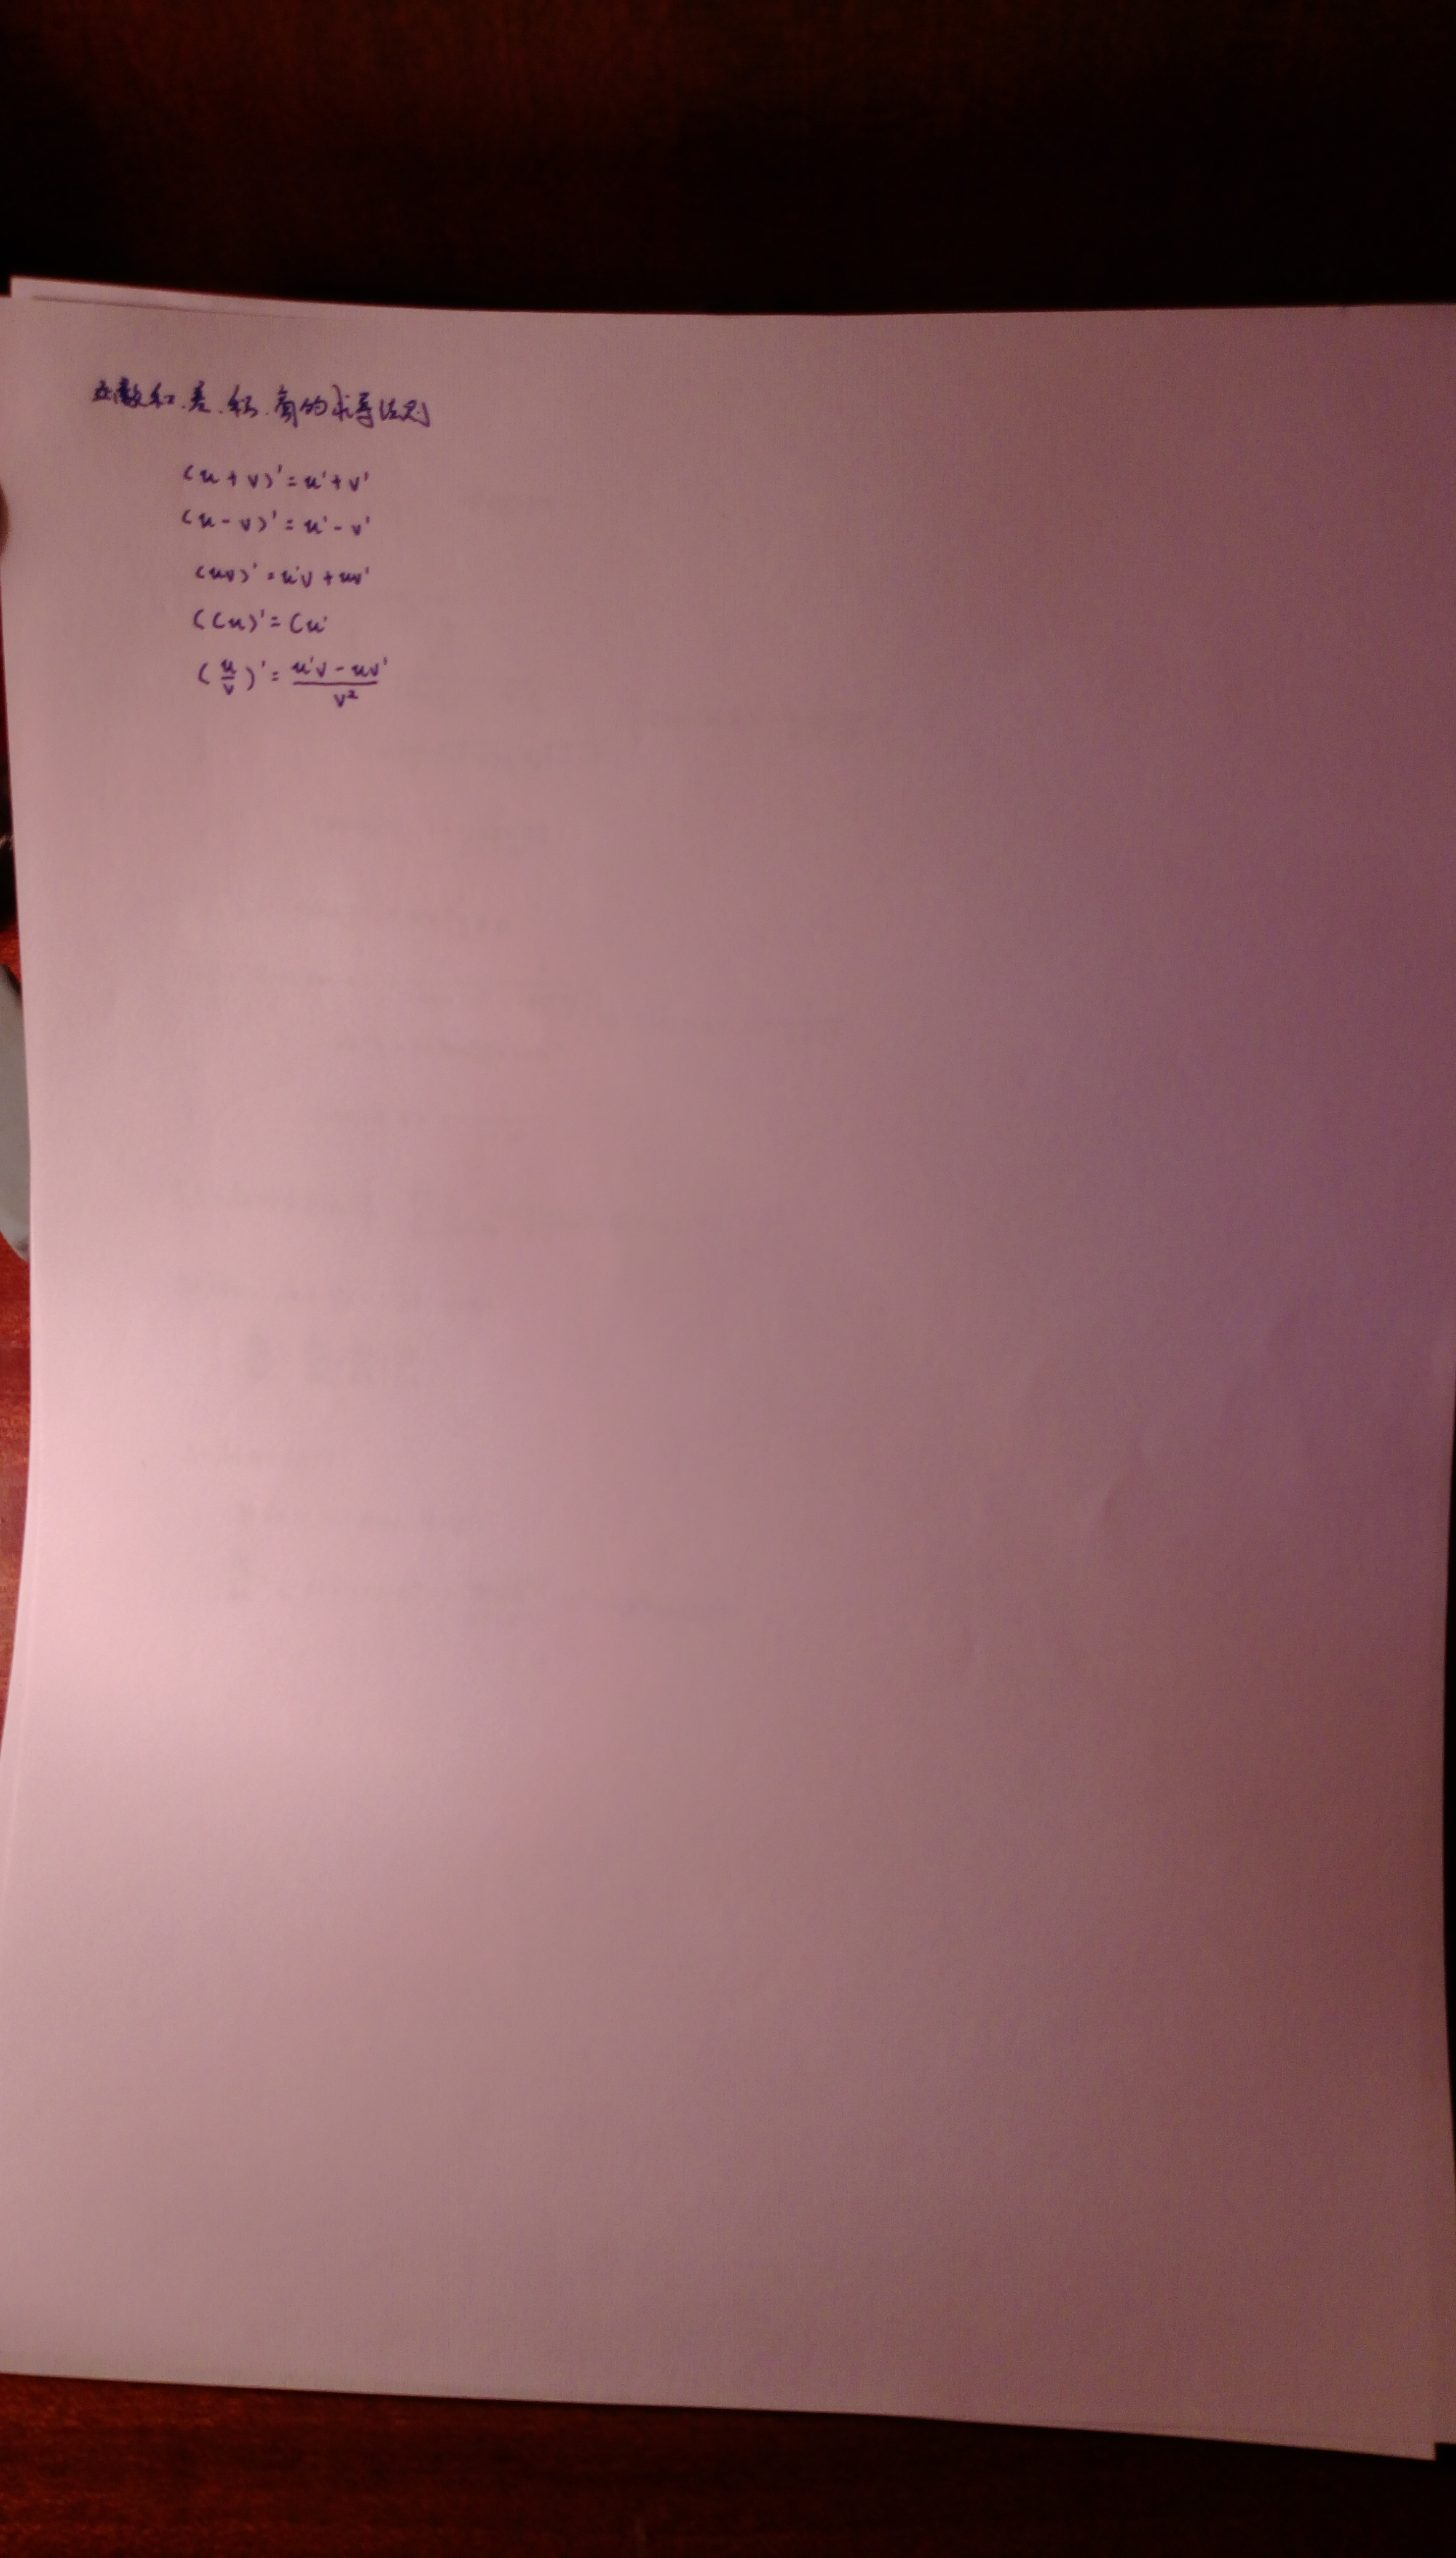 函数和.差.积.商的求导法则
(u+v)'=u'+v'
(u-v)'=u'-v'
(uv)'=u'v+uv'
(Cu)'=Cu'
(u/v)'=(u'v-uv')/v²